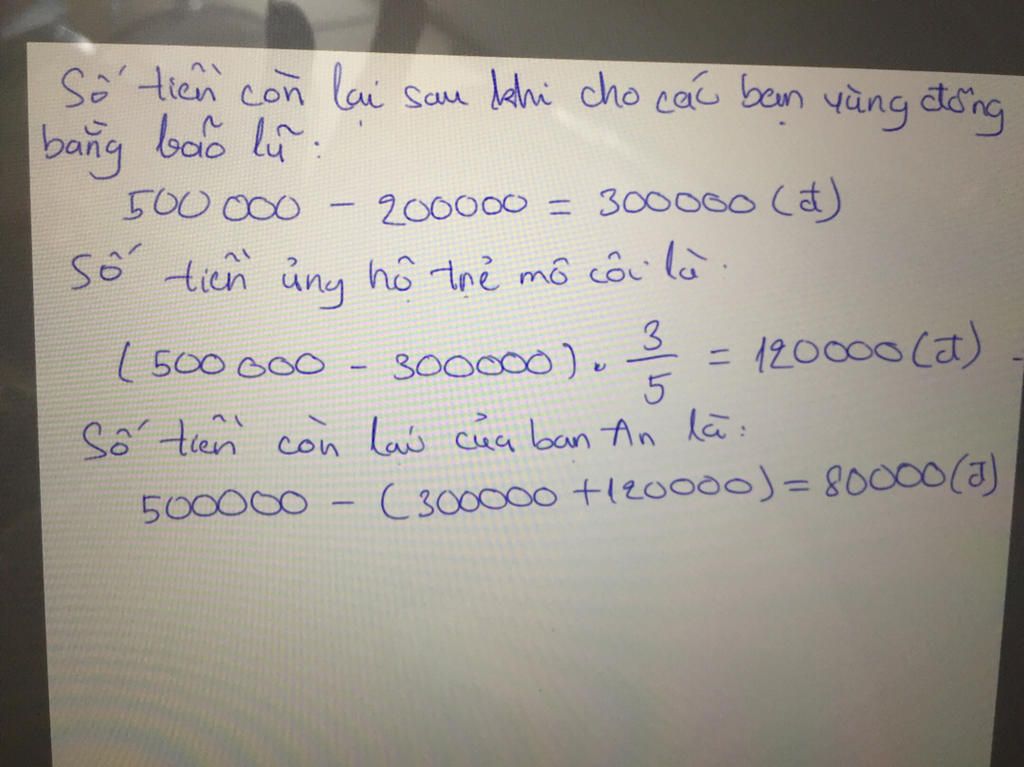 Số tiền còn lại sau khi cho các bạn vùng đồng
bằng bão lũ:
500 000 - 200000 = 300000 (đ)
Số tiền ủng hộ trẻ mồ côi là:
(500 000 - 300000) . 3/5 = 120000 (đ)
Số tiền còn lại của bạn An là:
500000 - (300000 + 120000) = 80000 (đ)